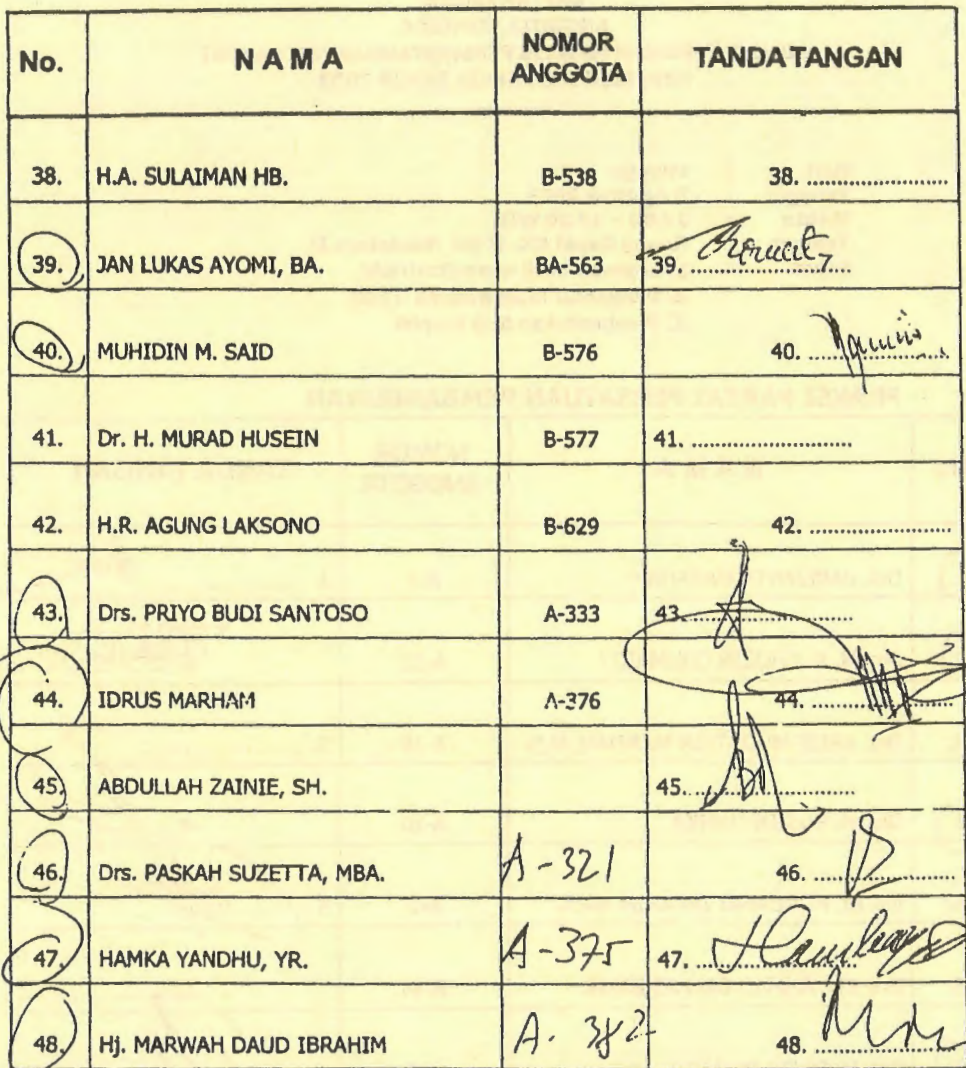 No. NAMA NOMOR ANGGOTA TANDA TANGAN
38. H.A. SULAIMAN HB. B-538 38. ........................
39. JAN LUKAS AYOMI, BA. BA-563 39. ........................
40. MUHIDIN M. SAID B-576 40. ........................
41. Dr. H. MURAD HUSEIN B-577 41. ........................
42. H.R. AGUNG LAKSONO B-629 42. ........................
43. Drs. PRIYO BUDI SANTOSO A-333 43. ........................
44. IDRUS MARHAM A-376 44. ........................
45. ABDULLAH ZAINIE, SH. 45. ........................
46. Drs. PASKAH SUZETTA, MBA. A-321 46. ........................
47. HAMKA YANDHU, YR. A-375 47. ........................
48. Hj. MARWAH DAUD IBRAHIM A. 382 48. ........................